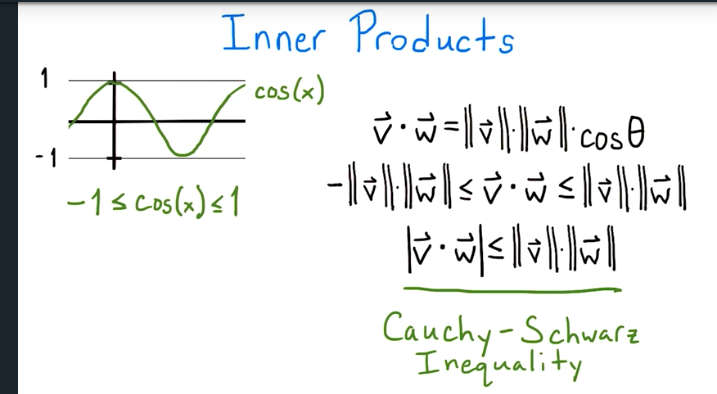 Inner Products
1
cos(x)
-1
-1 ≤ cos(x) ≤ 1
v⃗ · w⃗ = ||v⃗||·||w⃗||·cosθ
-||v⃗||·||w⃗|| ≤ v⃗ · w⃗ ≤ ||v⃗||·||w⃗||
|v⃗ · w⃗| ≤ ||v⃗||·||w⃗||
Cauchy-Schwarz
Inequality